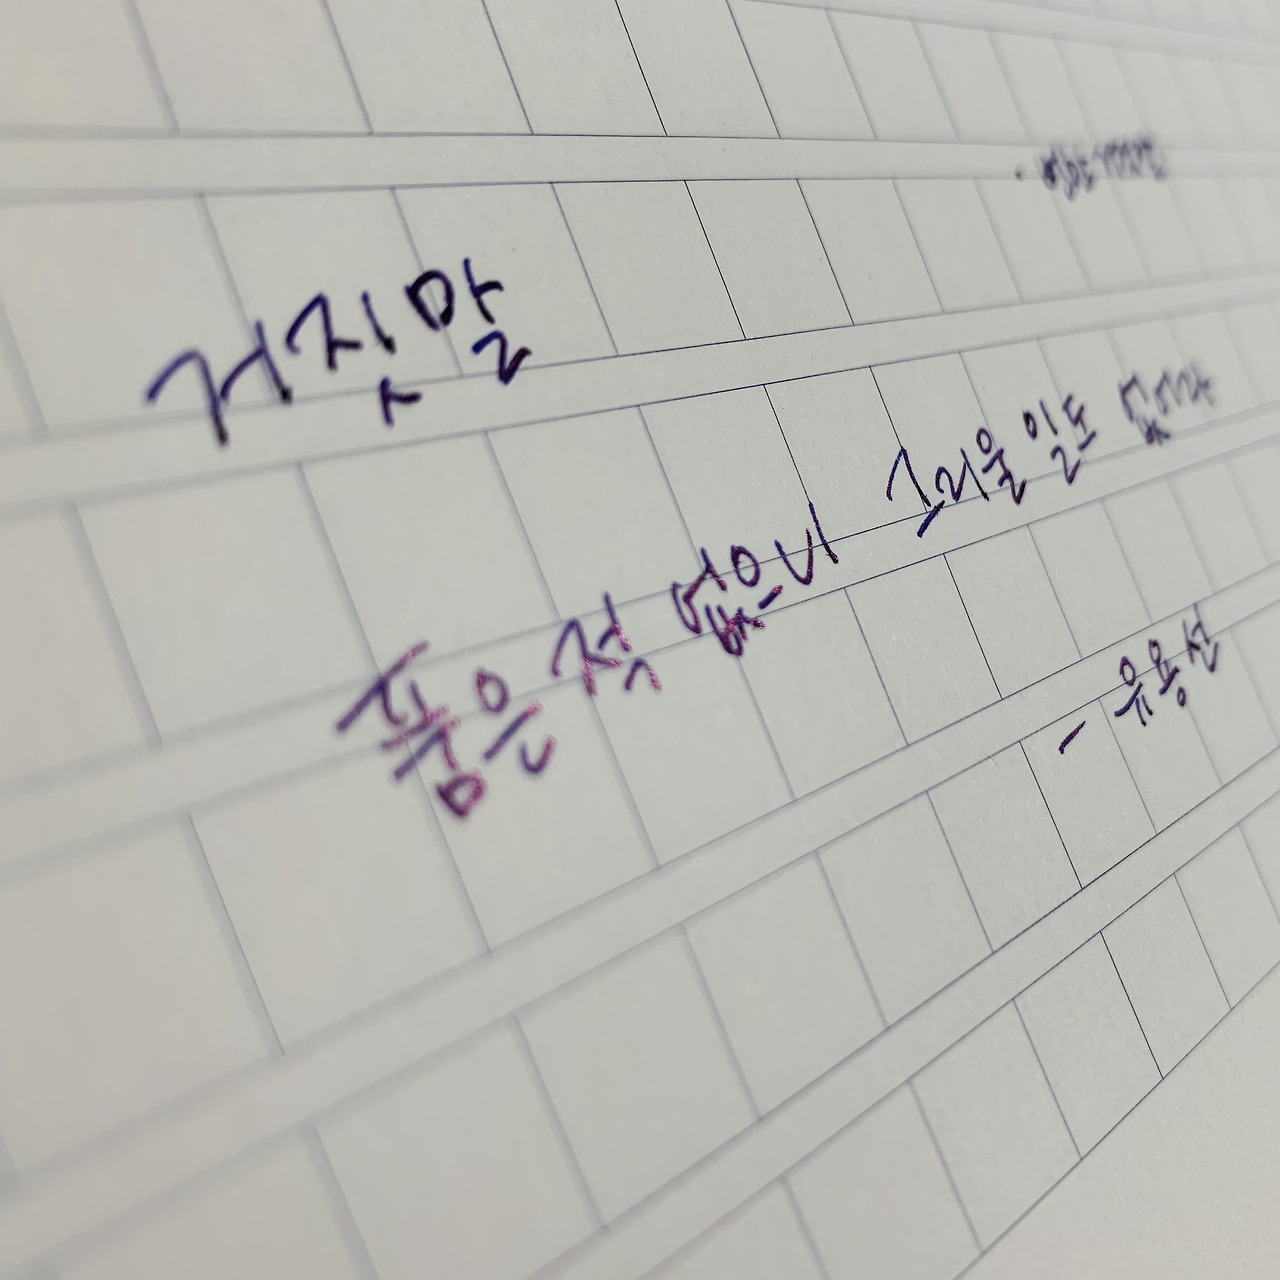 거짓말
품은 적 없으니 그리울 일도 없어라
- 유용선